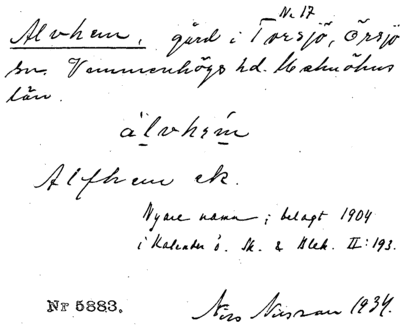 Nr 17
Alvhem, gård i Torsjö, Örsjö
sn. Vemmenhögs hd. Malmöhus
län.
álvhém
Alfhem ek.
Nyare namn; belagt 1904
i Kalender ö. Sk. & Blek. II:193.
Nr 5883.
Nils Nilsson 1934.